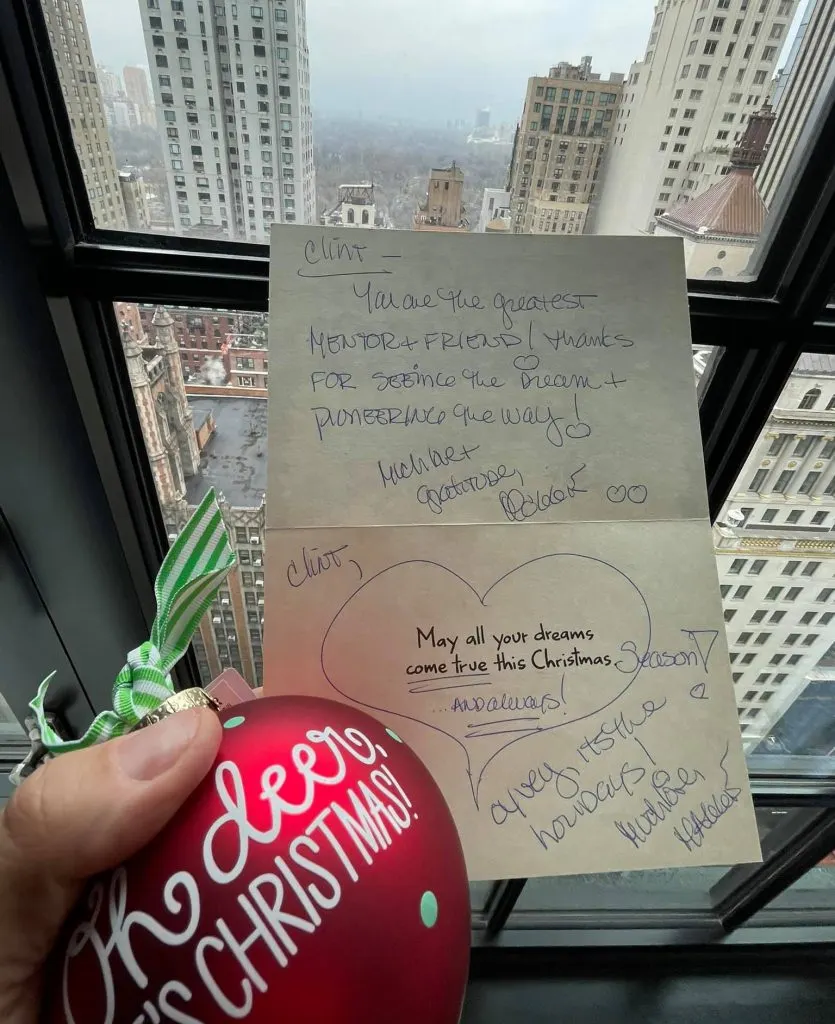 Clint —
You are the greatest
MENTOR + FRIEND! thanks
FOR seeing the Dream +
PIONEERING the way!
Much love +
gratitude,
Clint,
May all your dreams
come true this Christmas Season
...AND always!
oyvey, its the
holidays!
Much love,
Oh deer,
IT'S CHRISTMAS!